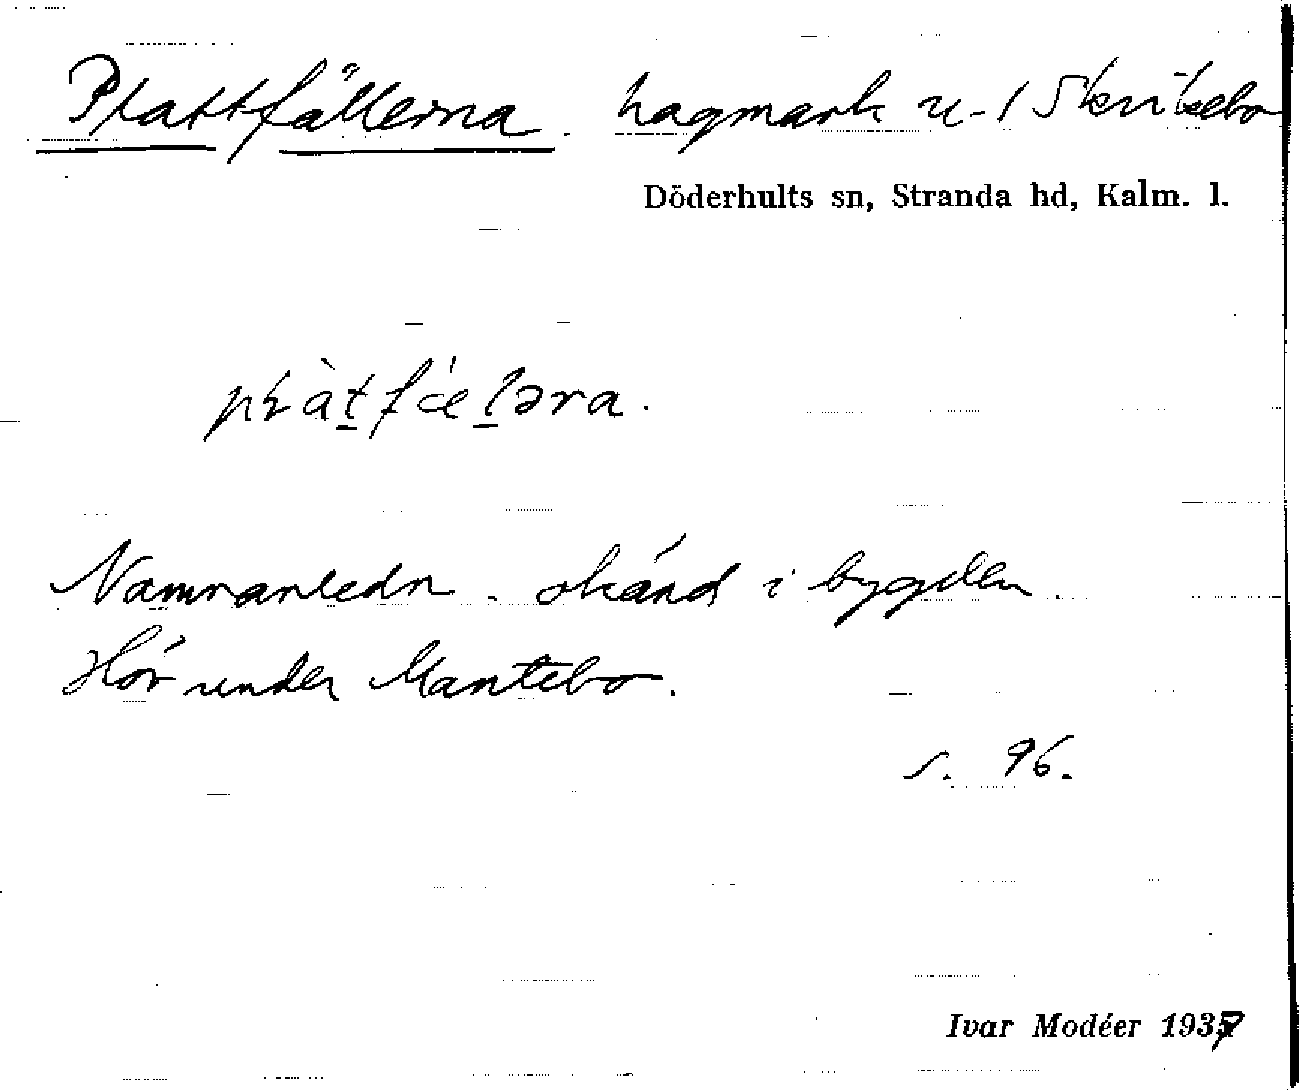 Plattfällerna. hagmark u. 1 Skrikebo
Döderhults sn, Stranda hd, Kalm. l.
Namnanledn. okänd i bygden.
Hör under Mantebo.
s. 96.
Ivar Modéer 1937